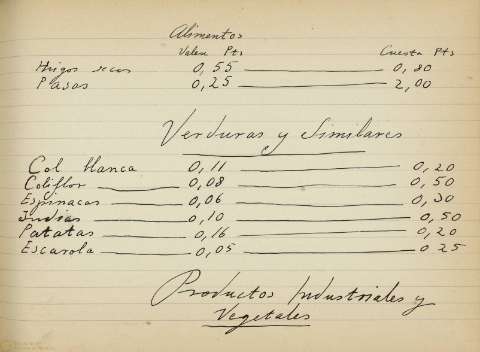 Alimentos
Valen Pts Cuesta Pts
Higos secos 0,55 0,80
Pasas 0,25 2,00
Verduras y Similares
Col blanca 0,11 0,20
Coliflor 0,08 0,50
Espinacas 0,06 0,30
Judias 0,10 0,50
Patatas 0,16 0,20
Escarola 0,05 0 25
Productos Industriales y
Vegetales